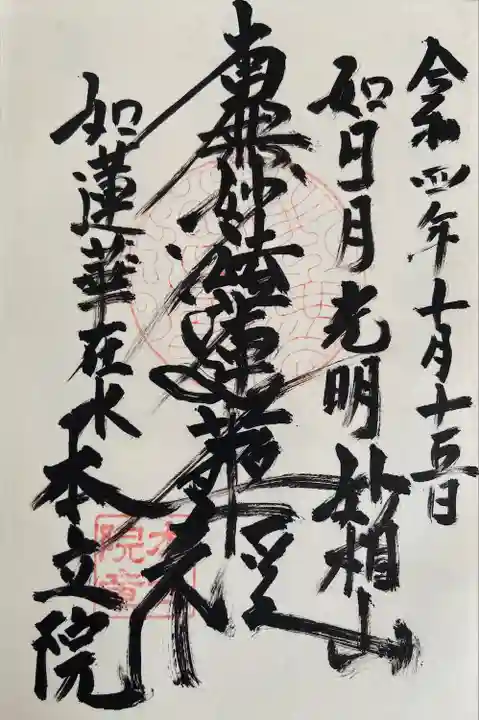 令和四年十月十五日
如日月光明妙相山
南無妙法蓮華経
如蓮華在水本立院